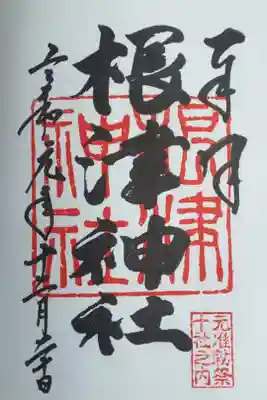 奉拝
根津神社
根津神社
元准勅祭
十社之内
令和元年十二月